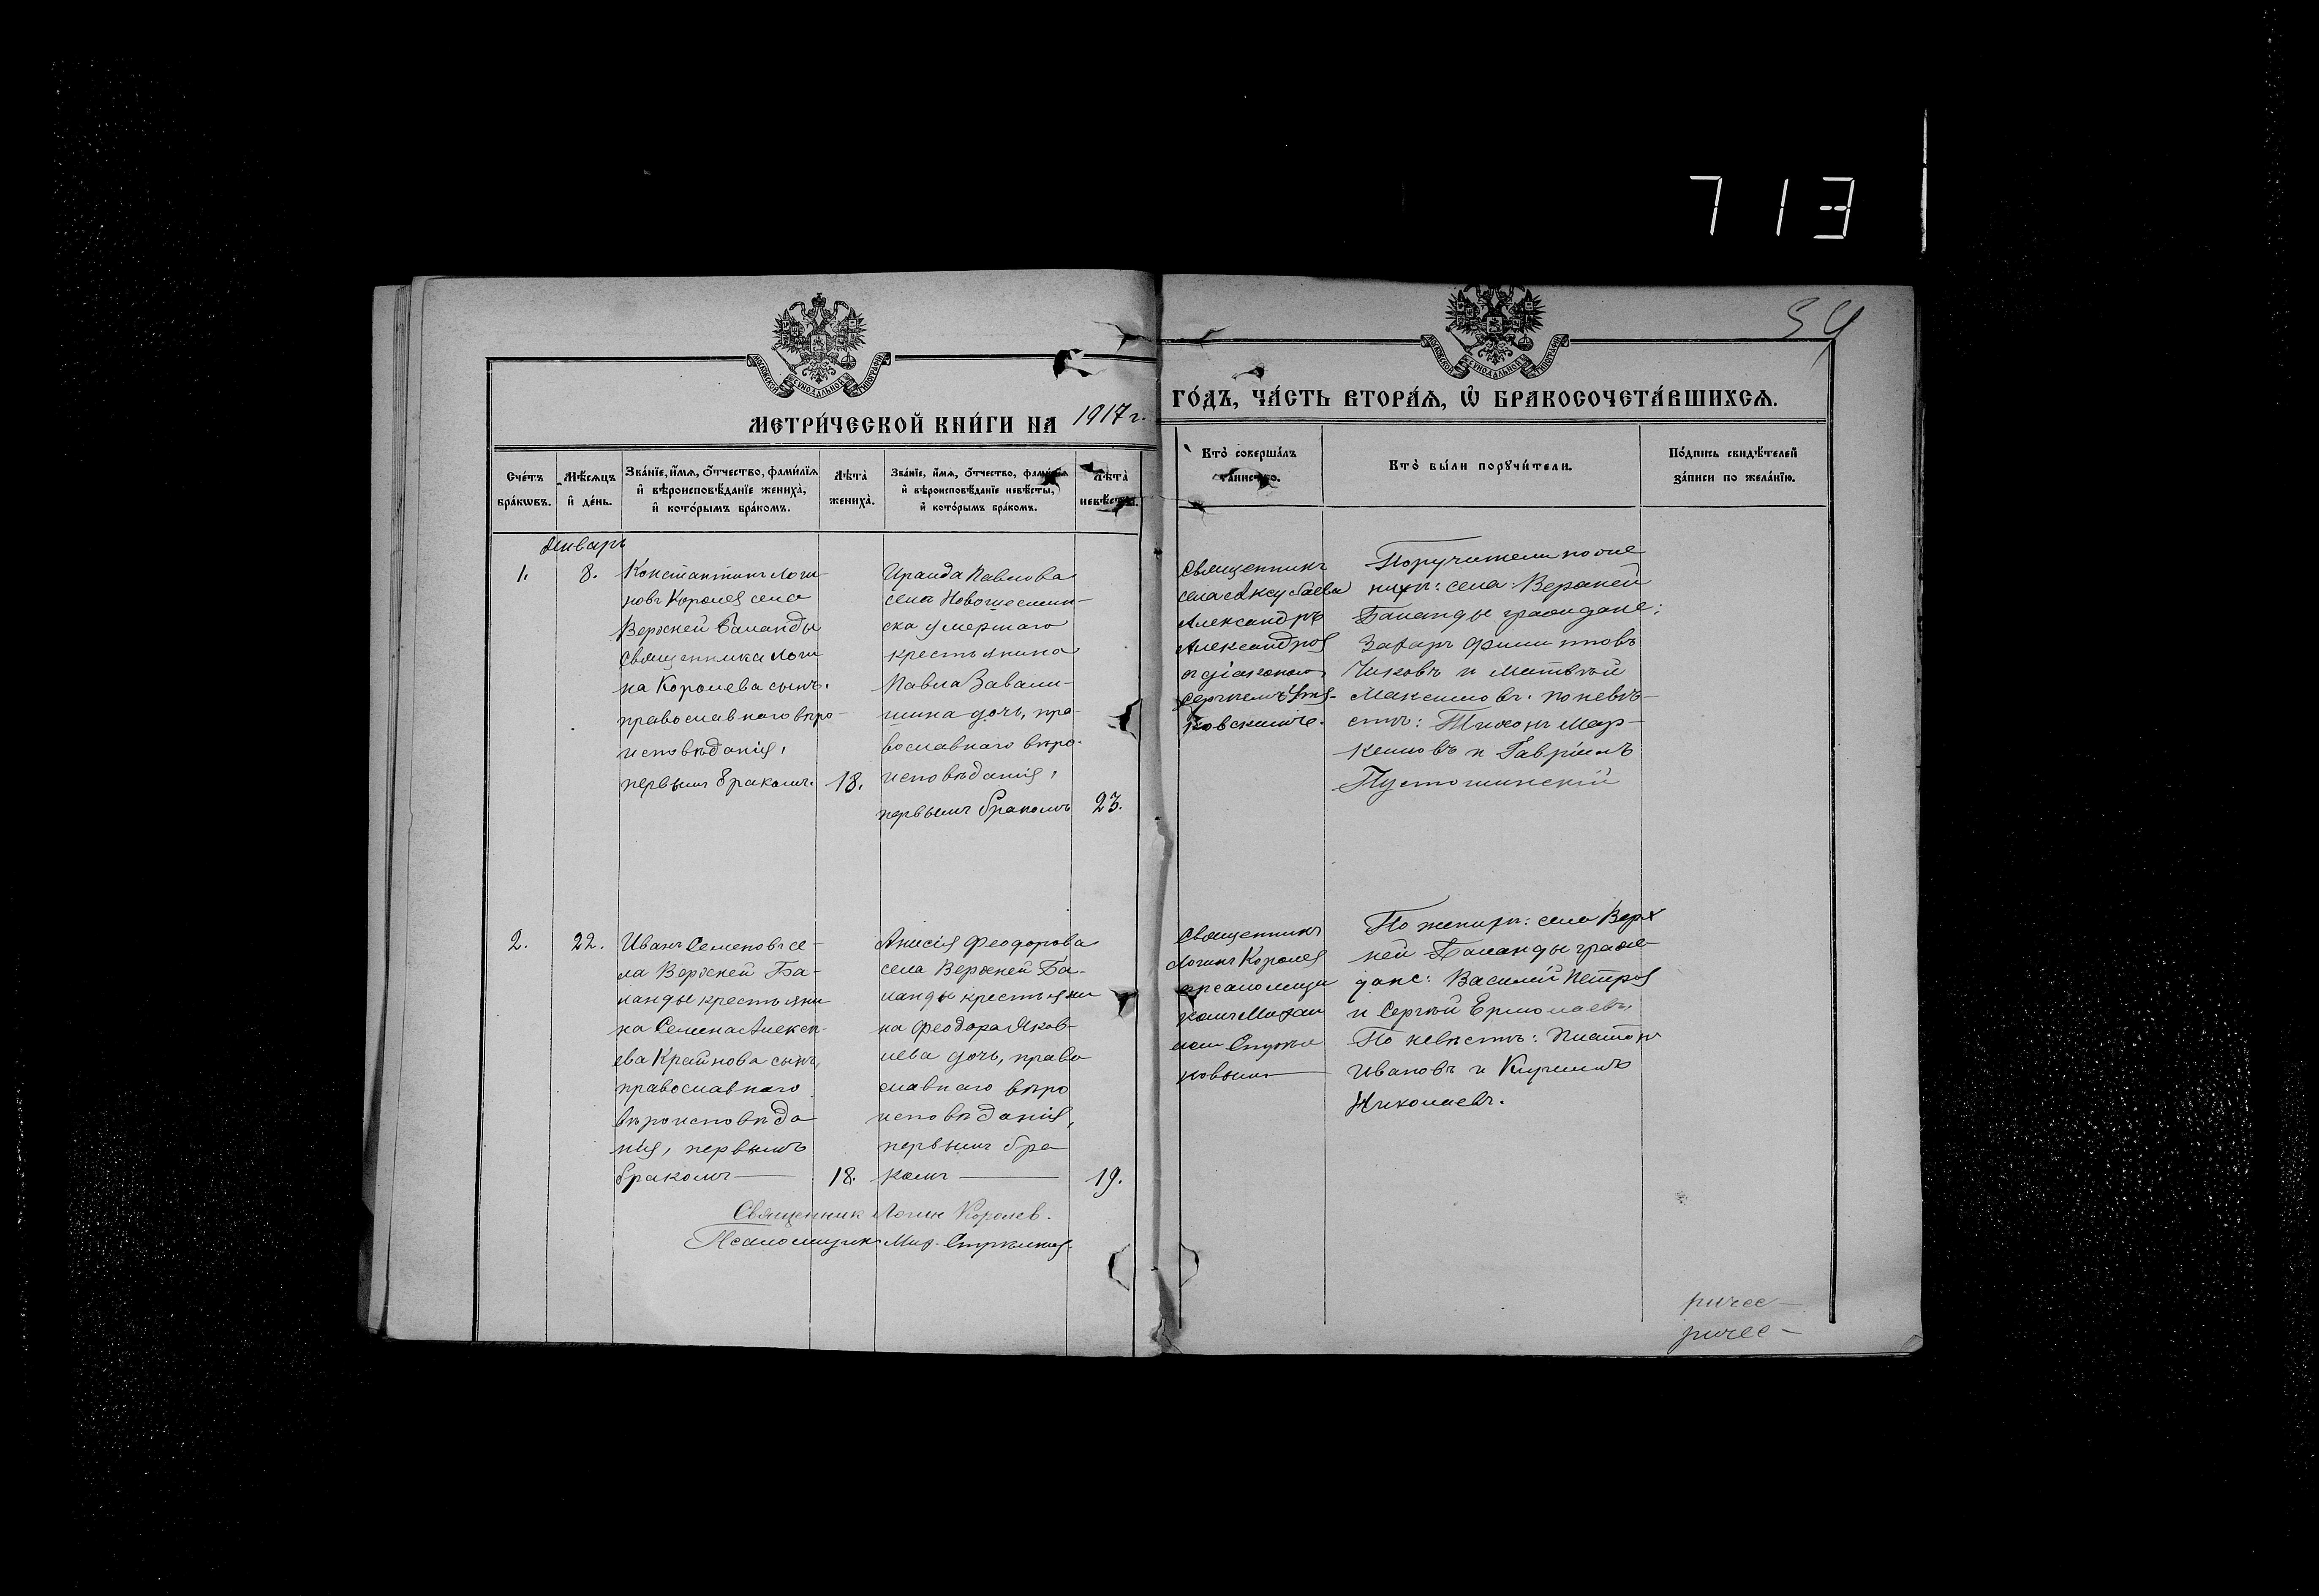 713
54
МОСКОВСКОЙ СУНОДАЛЬНОЙ ТИПОГРАФІИ
МОСКОВСКОЙ СУНОДАЛЬНОЙ ТИПОГРАФІИ
МЕТРИ́ЧЕСКОЙ КНИ́ГИ НА 1917 г.
ГО́ДЪ, ЧА́СТЬ ВТОРА́Ѧ, Ѡ҆ БРАКОСОЧЕТА́ВШИХСѦ.
Сче́тъ бра́кѡвъ.
Мѣ́сяцъ и҆ де́нь.
Зва́нїе, и҆́мѧ, ѻ҆́тчество, фами́лїѧ
и҆ вѣроисповѣ́данїе жениха̀,
и҆ кото́рымъ бра́комъ.
Лѣта̀ жениха̀.
Зва́нїе, и҆́мѧ, ѻ҆́тчество, фами́лїѧ
и҆ вѣроисповѣ́данїе невѣ́сты,
и҆ кото́рымъ бра́комъ.
Лѣта̀ невѣ́сты.
Кто̀ соверша́лъ
та́инство.
Кто̀ бы́ли порꙋчи́тели.
По́дпись свидѣ́телей
за́писи по жела́нїю.
Январь
1.
8.
Константинъ Логи-
новъ Королев села
Верхней Баланды
священника Логи
на Королева сынъ.
православнаго вѣро-
исповѣданія,
первым браком.
18.
Ираида Павлова
села Новошешмин-
ска умершаго
крестьянина
Павла Завали-
шина дочь, пра-
вославнаго вѣро-
исповѣданія,
первымъ бракомъ
23.
Священникъ
села Аксубаева
Александръ
Александров
с діаконом
Сергѣемъ
ковскимъ.
Поручители по же
нихѣ: села Верхней
Баланды граждане:
Захаръ Филипповъ
Чижовъ и Матвѣй
Максимовъ. по невѣ-
стѣ: Тихонъ Мар-
келловъ и Гавріилъ
Пустошинскій
2.
22.
Иванъ Семеновъ се-
ла Верхней Ба-
ланды крестьяни
на Семена Алексѣ-
ева Крайнова сынъ,
православнаго
вѣроисповѣда
нія, первымъ
бракомъ
18.
Анисія Феодорова
села Верхней Ба-
ланды крестьяни
на Феодора Яков-
лева дочь, право
славнаго вѣро
исповѣданія,
первымъ бра
комъ
19.
Священникъ
Логинъ Королев
с псаломщи
комъ Михаи
лом Стрѣл
ковым
По женихѣ: села Верх
ней Баланды граж-
дане: Василій Петров
и Сергѣй Ермолаевъ,
По невѣстѣ: Платонъ
Ивановъ и Кириллъ
Николаевъ.
Священник Логин Королев.
Псаломщикъ Мих. Стрѣлков.